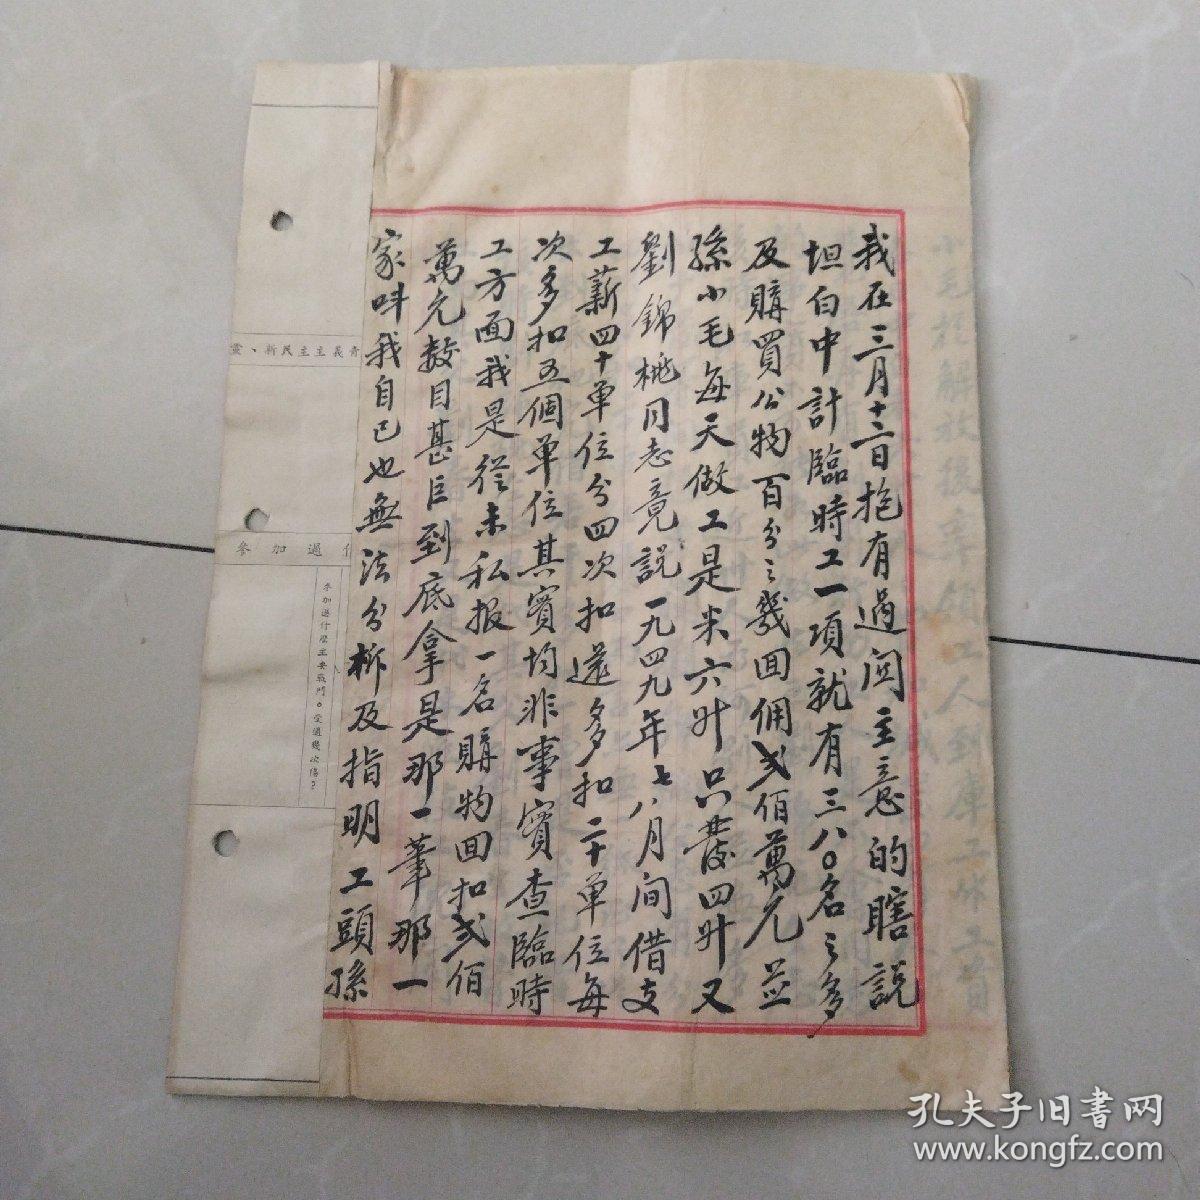 我在三月十三日抱有過関主意的瞎説
坦白中計臨時工一項就有三八〇名之多
及購買公物百分之幾回佣弍佰萬元並
孫小毛每天做工是米六升只發四升又
劉錦桃同志竟説一九四九年七八月间借支
工薪四十單位分四次扣還多扣二十單位每
次多扣五個單位其實均非事實查臨時
工方面我是從未私报一名購物回扣弍佰
萬元數目甚巨到底拿是那一筆那一
家呌我自己也無法分析及指明工頭孫
靈、新民主主義青
參加過什
參加過什麼主要戰鬥。受過幾次傷？
孔夫子旧書网
www.kongfz.com